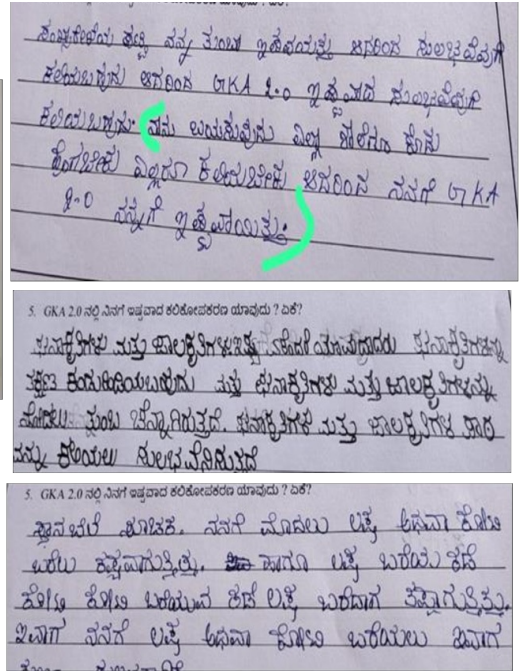 ಸಂಖ್ಯಾರೇಖೆಯ ಪಟ್ಟಿ ನನ್ನ ತುಂಬಾ ಇಷ್ಟವಾಯಿತು ಆದರಿಂದ ಸುಲಭವಾಗಿ
ಕಲಿಯಬಹುದು ಆದರಿಂದ GKA 2.0 ಇಷ್ಟವಾದ ಸುಲಭವಾಗಿ
ಕಲಿಯಬಹುದು. ನಾನು ಬಯಸುವುದು ಎಲ್ಲಾ ಶಾಲೆಗೂ ಕೊಡು
ಎಲ್ಲರೂ ಕಲಿಯಬೇಕು ಆದರಿಂದ ನನಗೆ GKA
2.0 ನನ್ನಗೆ ಇಷ್ಟವಾಯಿತ್ತು.
5. GKA 2.0 ನಲ್ಲಿ ನಿನಗೆ ಇಷ್ಟವಾದ ಕಲಿಕೋಪಕರಣ ಯಾವುದು ? ಏಕೆ?
ಘನಾಕೃತಿಗಳು ಮತ್ತು ಜಾಲಕೃತಿಗಳು ಇಷ್ಟ ಏಕೆಂದರೆ ಯಾವುದಾದರು ಘನಾಕೃತಿಗಳನ್ನು
ತಕ್ಷಣ ಕಂಡುಹಿಡಿಯಬಹುದು ಮತ್ತು ಘನಾಕೃತಿಗಳು ಮತ್ತು ಜಾಲಕೃತಿಗಳನ್ನು
ನೋಡಲು ತುಂಬ ಚೆನ್ನಾಗಿರುತ್ತದೆ. ಘನಾಕೃತಿಗಳ ಮತ್ತು ಜಾಲಕೃತಿಗಳ ಪಾಠ
ವನ್ನು ಕಲಿಯಲು ಸುಲಭವೆನಿಸುತ್ತದೆ
5. GKA 2.0 ನಲ್ಲಿ ನಿನಗೆ ಇಷ್ಟವಾದ ಕಲಿಕೋಪಕರಣ ಯಾವುದು ? ಏಕೆ?
ಸ್ಥಾನಬೆಲೆ ಸೂಚಕ. ನನಗೆ ಮೊದಲು ಲಕ್ಷ ಅಥವಾ ಕೋಟಿ
ಬರೆಲು ಕಷ್ಟವಾಗುತ್ತಿತ್ತು. ಹಾಗೂ ಲಕ್ಷ ಬರೆಯು ಕಡೆ
ಕೋಟಿ ಕೋಟಿ ಬರೆಯುವ ಕಡೆ ಲಕ್ಷ ಬರೆದಾಗ ತಪ್ಪಾಗುತ್ತಿತ್ತು.
ಇವಾಗ ನನಗೆ ಲಕ್ಷ ಅಥವಾ ಕೋಟಿ ಬರೆಯಲು ಇವಾಗ